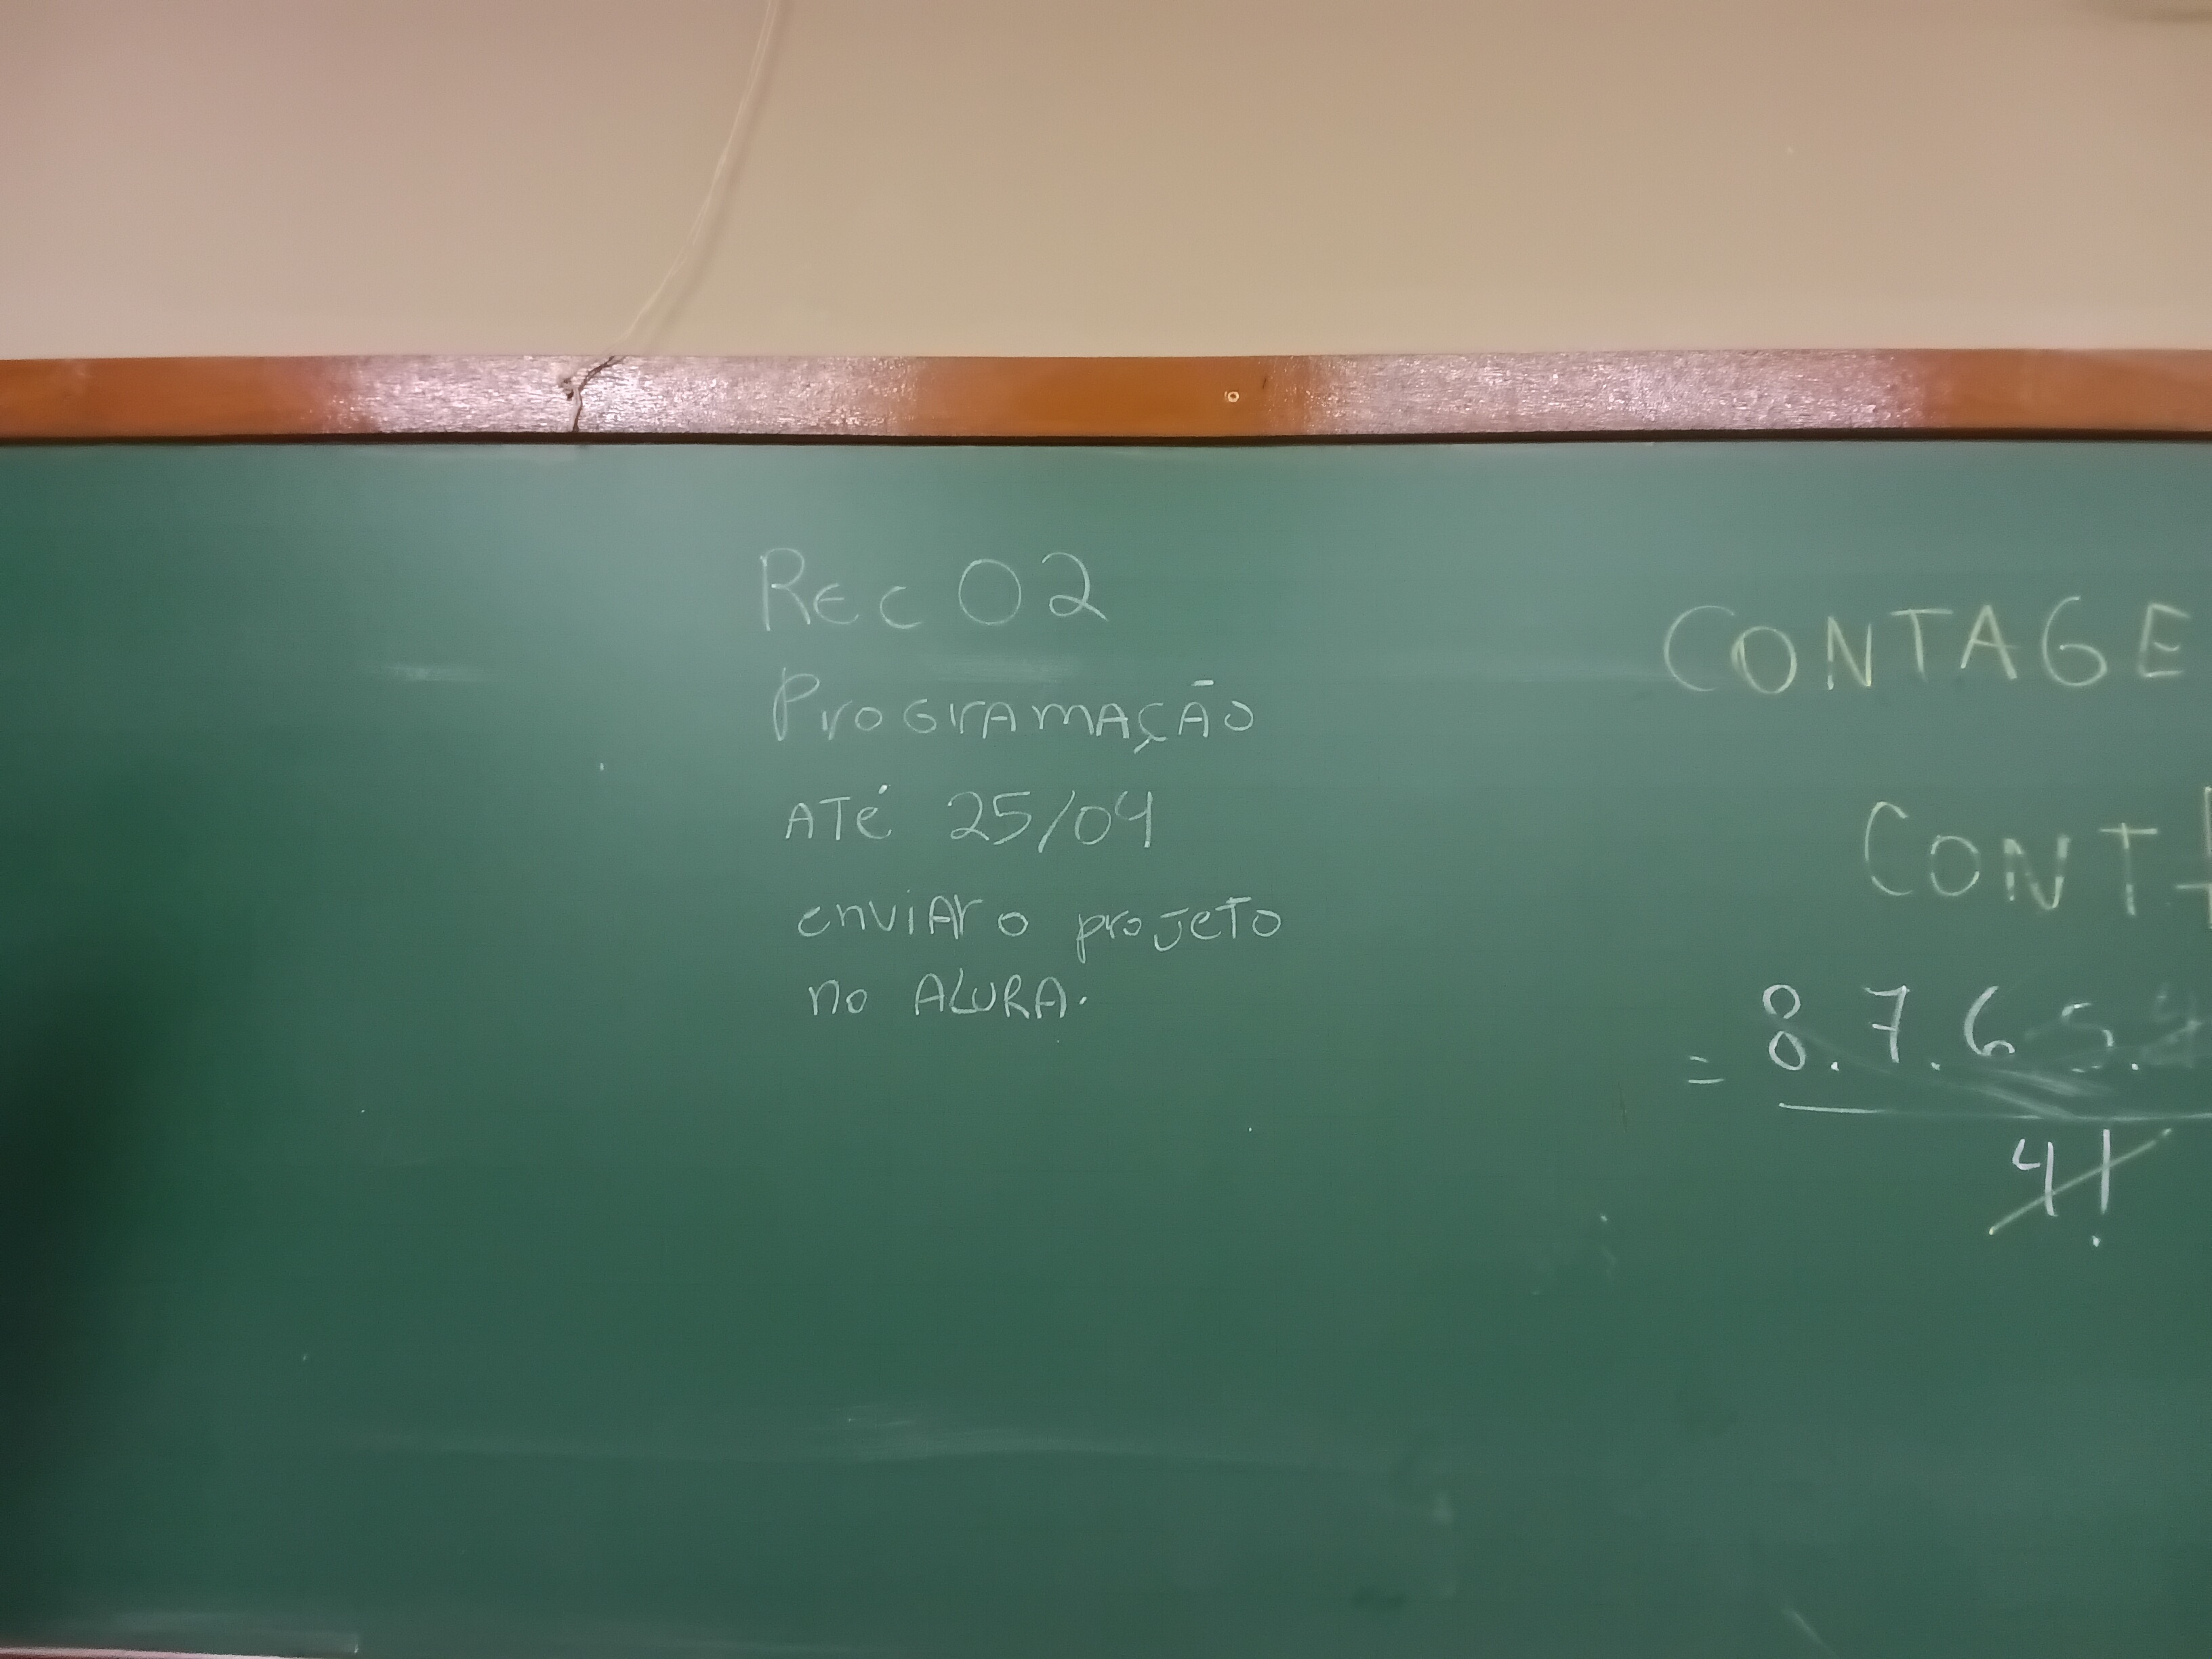 Rec 02
Programação
Até 25/04
enviar o projeto
no ALURA.
CONTAGE
CONT
= 8.7.6.5.4
4!